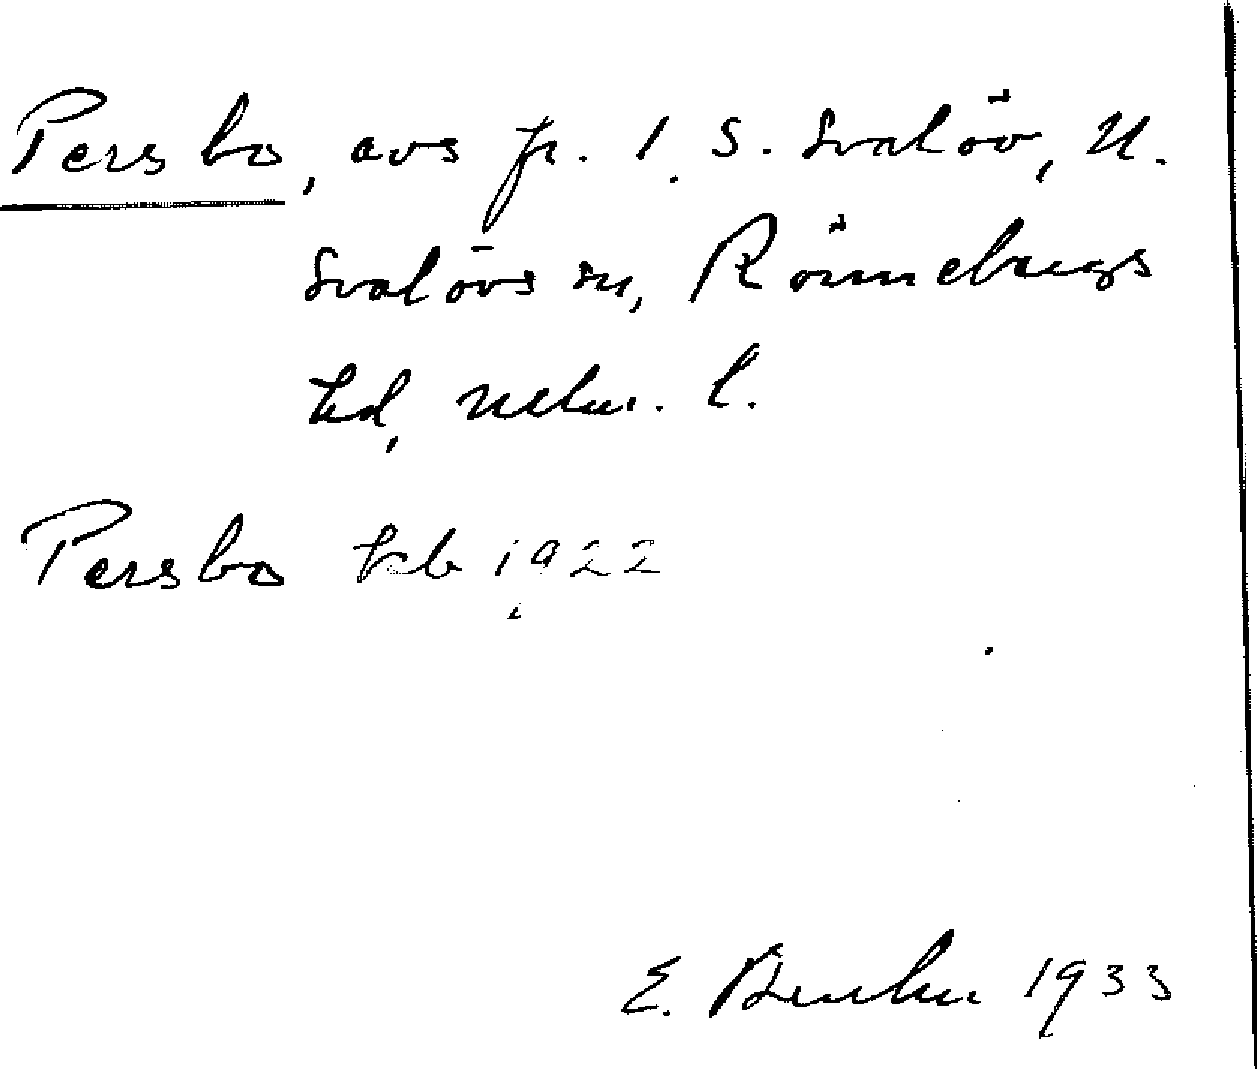 Persbo, avs fr. 1, S. Svalöv, N.
Svalövs sn, Rönnebergs
hd, Malm. l.
Persbo kb 1922
E. 1933